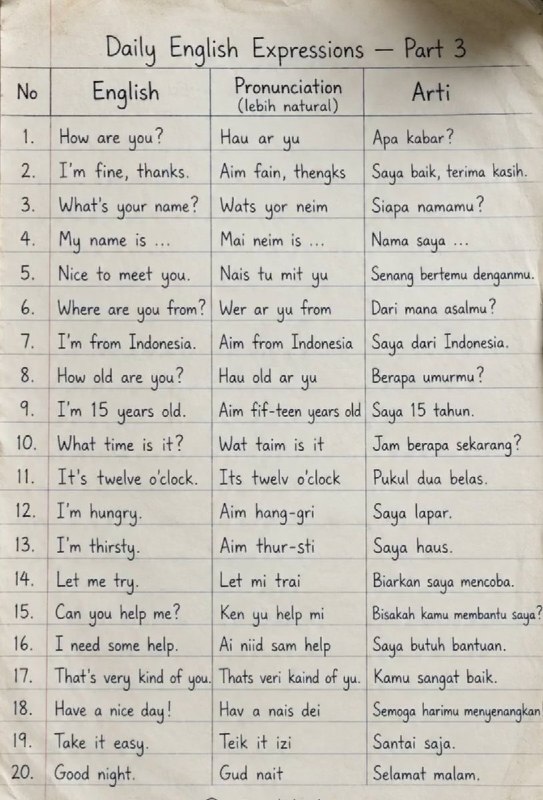 Daily English Expressions — Part 3
No English Pronunciation (lebih natural) Arti
1. How are you? Hau ar yu Apa kabar?
2. I'm fine, thanks. Aim fain, thengks Saya baik, terima kasih.
3. What's your name? Wats yor neim Siapa namamu?
4. My name is ... Mai neim is ... Nama saya ...
5. Nice to meet you. Nais tu mit yu Senang bertemu denganmu.
6. Where are you from? Wer ar yu from Dari mana asalmu?
7. I'm from Indonesia. Aim from Indonesia Saya dari Indonesia.
8. How old are you? Hau old ar yu Berapa umurmu?
9. I'm 15 years old. Aim fif-teen years old Saya 15 tahun.
10. What time is it? Wat taim is it Jam berapa sekarang?
11. It's twelve o'clock. Its twelv o'clock Pukul dua belas.
12. I'm hungry. Aim hang-gri Saya lapar.
13. I'm thirsty. Aim thur-sti Saya haus.
14. Let me try. Let mi trai Biarkan saya mencoba.
15. Can you help me? Ken yu help mi Bisakah kamu membantu saya?
16. I need some help. Ai niid sam help Saya butuh bantuan.
17. That's very kind of you. Thats veri kaind of yu. Kamu sangat baik.
18. Have a nice day! Hav a nais dei Semoga harimu menyenangkan
19. Take it easy. Teik it izi Santai saja.
20. Good night. Gud nait Selamat malam.